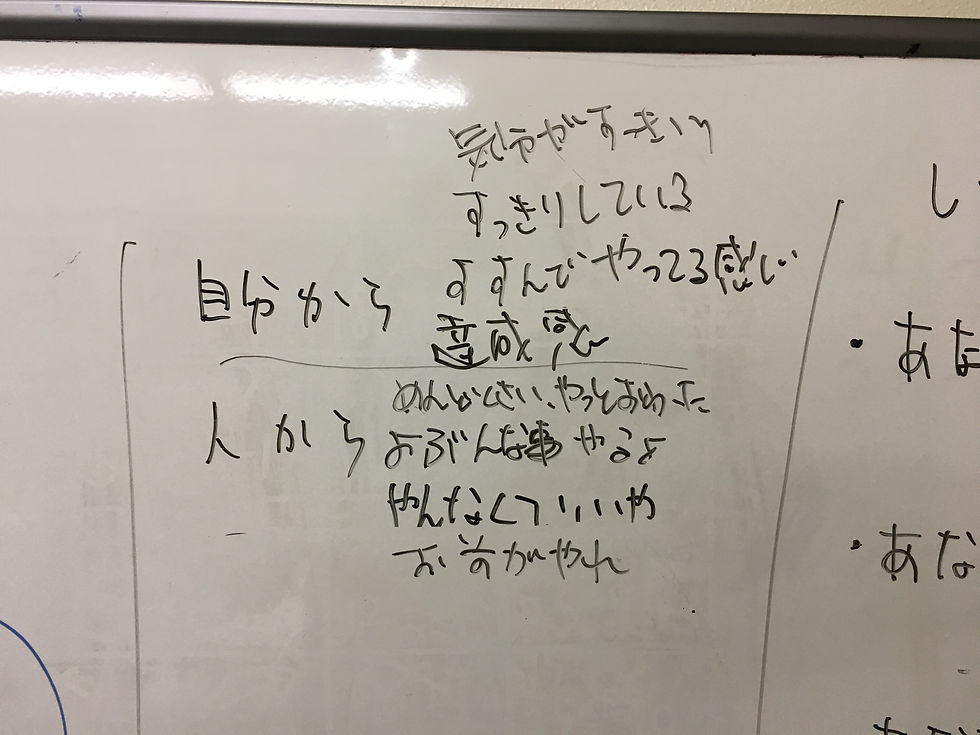 気分がすっきり
すっきりしている
自分から
すすんでやってる感じ
達成感
人から
めんどくさい、やっとおわった
よぶんな事やるよ
やんなくていいや
お前がやれ
し
・あな
・あな